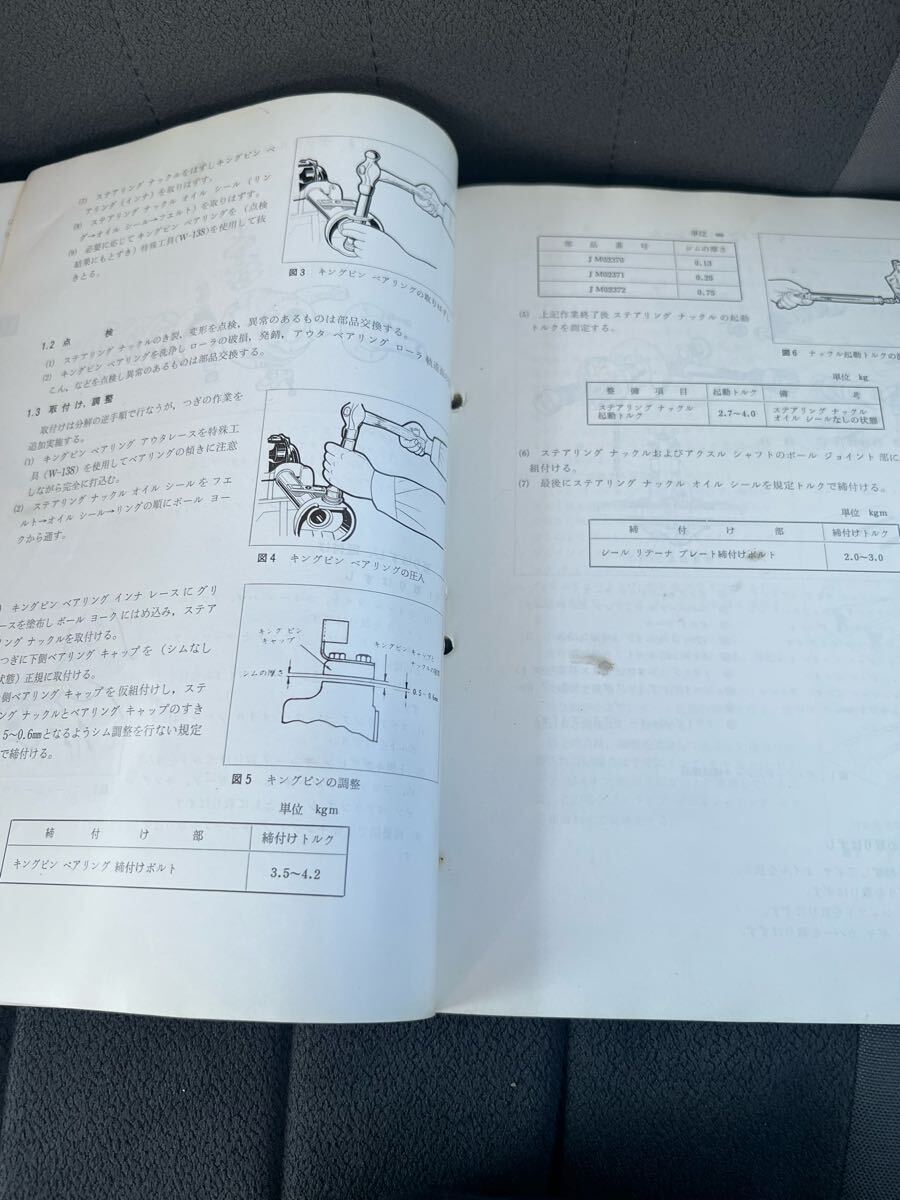 (7) ステアリング ナックルをはずしキングピン ベ
アリング (インナ) を取りはずす。
(8) ステアリング ナックル オイル シール (リン
グ→オイル シール→フェルト) を取りはずす。
(9) 必要に応じて キングピン ベアリングを (点検
結果にもとずき) 特殊工具(W-138)を使用して抜
きとる。
図3 キングピン ベアリングの取りはずし
1.2 点 検
(1) ステアリング ナックルのき裂、変形を点検，異常のあるものは部品交換する。
(2) キングピン ベアリングを洗浄し ローラの破損，発錆，アウタ ベアリング ローラ
こん、などを点検し異常のあるものは部品交換する。
1.3 取付け，調整
取付けは分解の逆手順で行なうが，つぎの作業を
追加実施する。
(1) キングピン ベアリング アウタレースを特殊工
具 (W-138) を使用してベアリングの傾きに注意
しながら完全に打込む。
(2) ステアリング ナックル オイル シールを フェ
ルト→オイル シール→リングの順にボール ヨー
クから通す。
図4 キングピン ベアリングの圧入
) キングピン ベアリング インナ レース に グリ
ースを塗布し ボール ヨーク にはめ込み，ステア
リング ナックルを取付ける。
つぎに下側ベアリング キャップを (シムなし
状態) 正規に取付ける。
側ベアリング キャップを 仮組付けし，ステ
ング ナックルとベアリング キャップのすき
5～0.6㎜となるようシム調整を行ない規定
で締付ける。
キング ピン
キャップ
キングピン キャップと
シムの厚さ
0.5～0.6㎜
図5 キングピンの調整
単位 kgm
締 付 け 部 締付けトルク
キングピン ベアリング 締付けボルト 3.5～4.2
単位 ㎜
部 品 番 号 シムの厚さ
J M02370 0.13
J M02371 0.25
J M02372 0.75
(5) 上記作業終了後 ステアリング ナックルの起動
トルクを測定する。
図6 ナックル起動トルクの
単位 kg
整 備 項 目 起動トルク 備 考
ステアリング ナックル
起動トルク 2.7～4.0 ステアリング ナックル
オイル シールなしの状態
(6) ステアリング ナックルおよびアクスル シャフトのボール ジョイント 部に
組付ける。
(7) 最後にステアリング ナックル オイル シールを規定トルクで締付ける。
単位 kgm
締 付 け 部 締付けトルク
シール リテーナ プレート締付けボルト 2.0～3.0